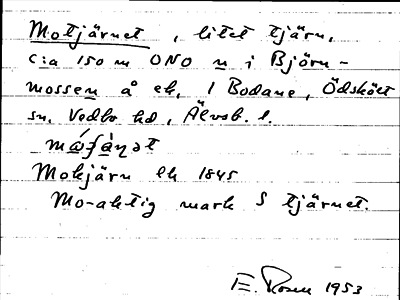 Motjärnet, litet tjärn,
c:a 150 m ONO n i Björn-
mossen å ek. 1 Bodane, Ödskölt
sn, Vedbo hd, Älvsb. l.
Mokjärn Ek 1845
Mo-aktig mark S tjärnet.
E. Rosen 1953